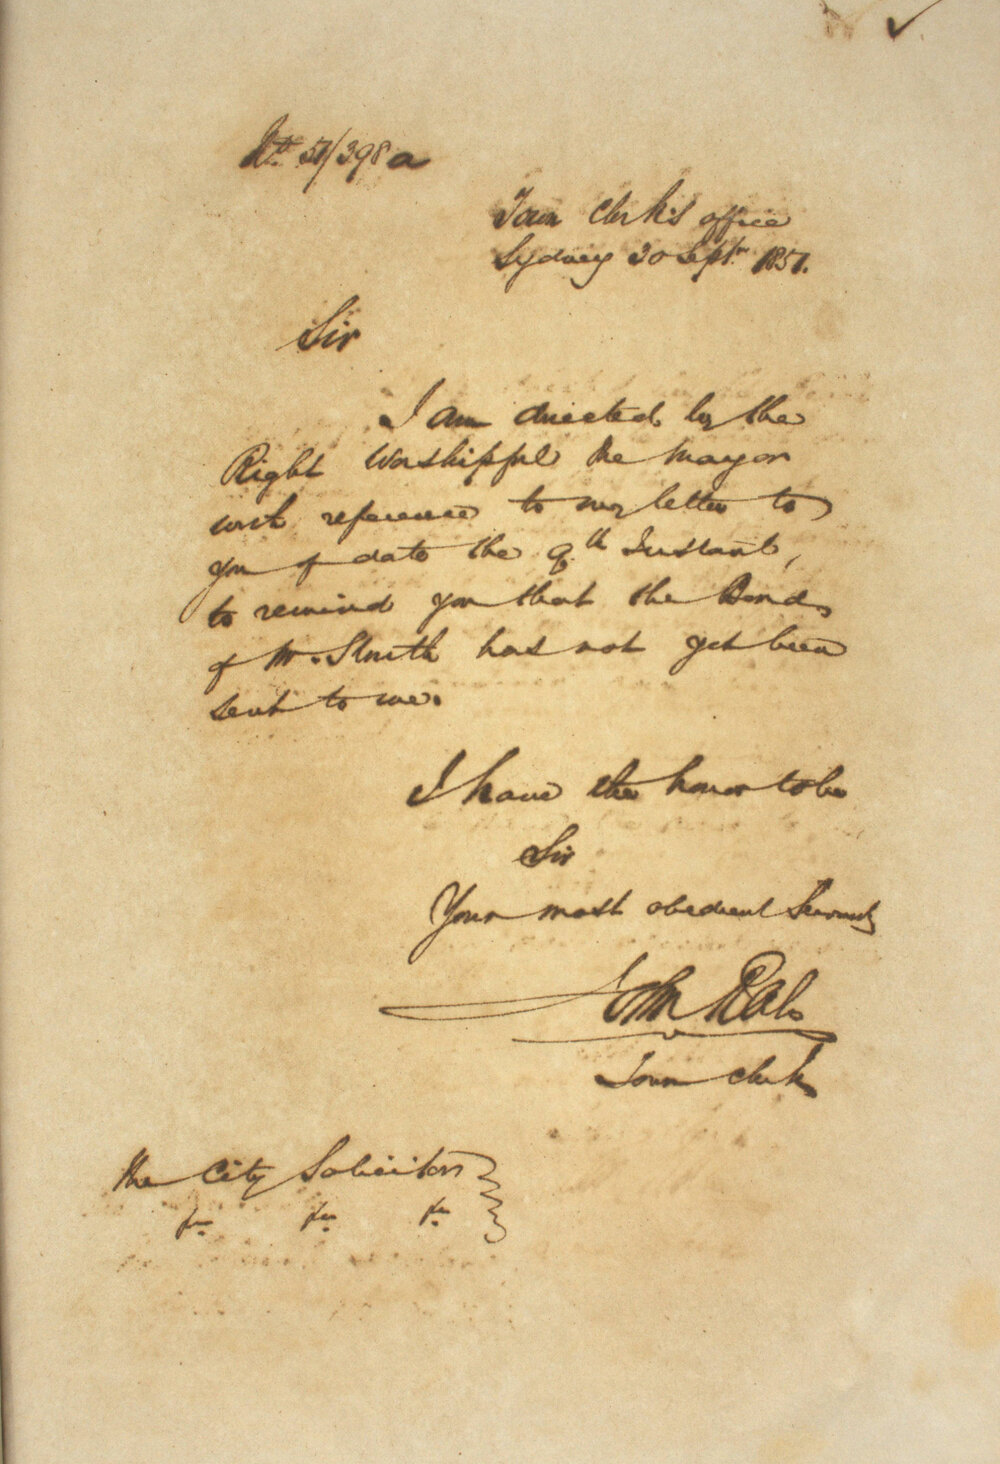 51/398a
Town Clerk's office
Sydney 30 Septr. 1851.
Sir
I am directed by the
Right Worshipful the Mayor
with reference to my letter to
you of date the 9th Instant,
to remind you that the Bond
of Mr. Smith has not yet been
sent to me.
I have the honor to be
Sir
Your most obedient Servant
John Rae
Town Clerk
The City Solicitor